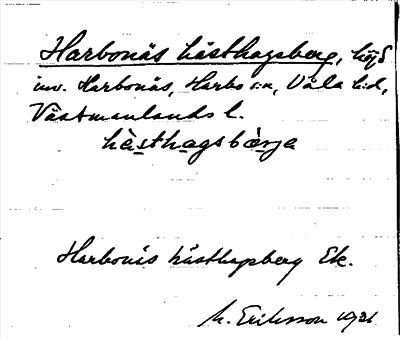 Harbonäs hästhagsberg, höjd
inv. Harbonäs, Harbo s:n, Våla h:d,
Västmanlands l.
hästhagsbärja
Harbonäs hästhagsberg Ek.
M. Eriksson 1931